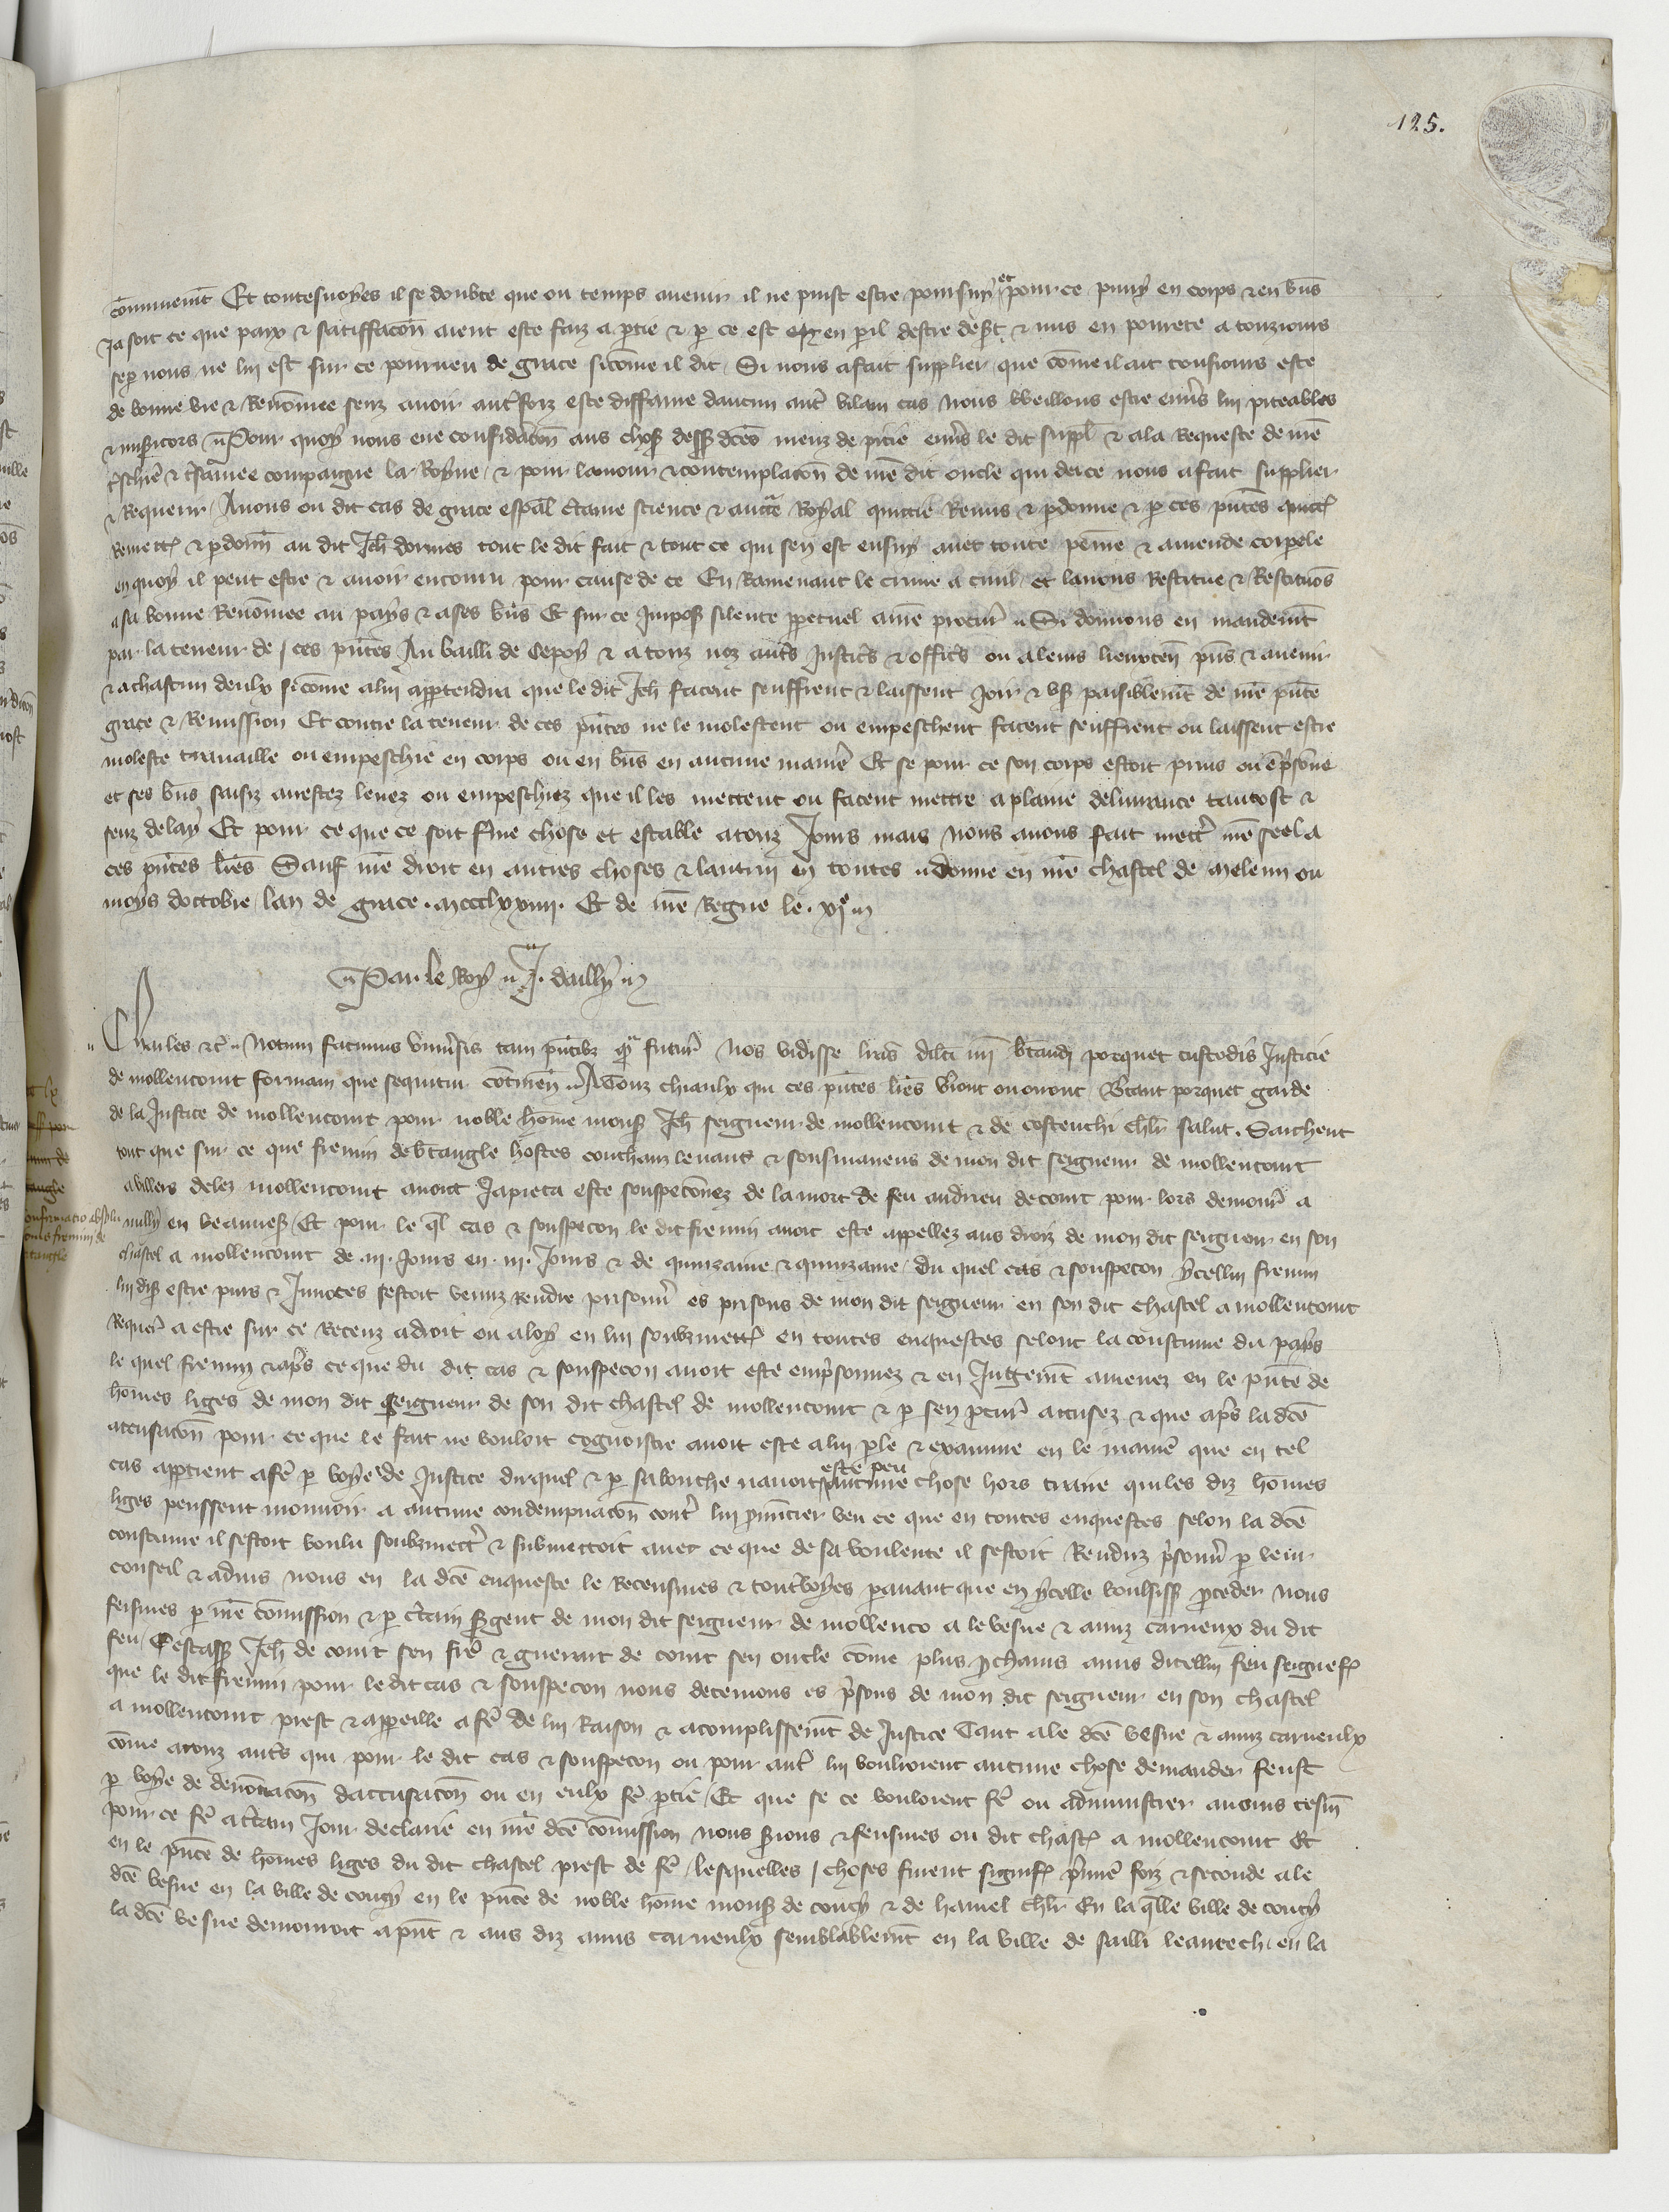 125.
co̅muneme̅t Et toutesuoyes il se doubte que ou temps auenir il ne puist estre poursuy et pour ce puny en corps & en bie̅s
Ja soit ce que paix & satiffacc̅on aient este faiz a p̲tie & p̲ ce est en p̲il destre desert & mis en pourete a touziours
se p̲ nous ne lui est sur ce pourueu de grace sico̅me il dit Si nous a fait supplier que co̅me il ait tousiours este
de bonne vie & Reno̅mee senz auoir aut̾foiz este diffame daucun aut̾ vilain cas Nous vueillons estre enu̾s lui piteables
& mis̾icors Pour quoy nous eue considerac̅on aus chos̾ dess̾ dc̅es meuz de pitie enu̾s le dit suppl̅ & a la Requeste de nr̅e
t̾schie̾ & t̾samee compaigne la Royne & pour lamour & contemplac̅on de nr̅e dit oncle qui de ce nous a fait supplier
& Requerir Auons ou dit cas de grace esp̅al c̾taine science & auct̅e Royal quittie Remis & p̲donne & p̲ ces pn̅tes quitt̾
Remett̾ & p̲donn̅ au dit Jeh̅ dormes tout le dit fait & tout ce qui sen est ensuy auec toute peine & amende corpele
en quoy il peut estre & auoir encouru pour cause de ce En Ramenant le crime a ciuil et lauons Restitue & Restituo̅s
a sa bonne Reno̅mee au pays & a ses bie̅s Et sur ce Impos̾ silence p̲petuel a nr̅e procur̾ Si donnons en mandeme̅t
par la teneur de ces pn̅tes Au bailli de Cepoy & a touz noz aut̾s Justic̾s & offic̾s ou a leurs lieuxten̅ pn̅s & auenir
& a chascun deulx si co̅me a lui app̲tendra que le dit Jeh̅ facent seuffrent & laissent Joir & vs̾ paisibleme̅t de nr̅e pn̅te
grace & Remission Et contre la teneur de ces pn̅tes ne le molestent ou empeschent facent seuffrent ou laissent estre
moleste trauaille ou empeschie en corps ou en bie̅s en aucune manie̾ Et se pour ce son corps estoit prins ou e̅pr̾so̅ne
et ses bie̅s saisiz arrestez leuez ou empeschiez que il les mettent ou facent mettre a plaine deliurance tantost &
senz delay Et pour ce que ce soit f̾me chose et estable a touz Jours mais Nous auons fait mett̾ nr̅e seel a
ces pn̅tes lr̅es Sauf nr̅e droit en autres choses & lautrui en toutes Donne en nr̅e chastel de Meleun ou
moys doctobre lan de grace mccclxxiiii Et de nr̅e Regne le xi^e
Par le Roy J. dailly
Charles &c̅ Notum facimus vniu̾sis tam pn̅tib̾ q^a futur̾ Nos vidisse lr̅as dilc̅i nr̅i b̾trandi porquet custodis Justicie
de mollencourt formam que sequitur co̅tinen̅ A Touz chiaulx qui ces pn̅tes lr̅es v̾ront ou orront B̾trant porquet garde
de la Justice de mollencourt pour noble ho̅me mons̾ Jeh̅ seigneur de mollencourt & de costenchi chl̅r Salut. Saichent
tout que sur ce que fremin de b̾tangle hostes couchanz leuans & sousmanens de mon dit seigneur de mollencourt
a villers delez mollencourt auoit Japieca este souspeco̅nez de la mort de feu andrieu de court pour lors demour̾ a
nully en beauues̾ Et pour le q̅l cas & souspecon le dit fremin auoit este appellez aus droiz de mon dit seigneur en son
chastel a mollencourt de iii. Jours en iii. Jours & de quinzaine & quinzaine du quel cas & souspecon ycellui fremin
lui dis̾ estre purs & Innoces sestoit venuz rendre prisonn̾ es prisons de mon dit seigneur en son dit chastel a mollencourt
Requer̾ a estre sur ce Receuz a droit ou a loy en lui soubzmett̾ en toutes enquestes selont la coustume du pays
le quel fremin & ap̾s ce que du dit cas & souspecon auoit este emp̾sonnez & en Jugeme̅t amenez en le pn̅ce de
ho̅mes liges de mon dit seigneur de son dit chastel de mollencourt & p̲ sen p̲cur̾ accusez & que ap̾s la dc̅e
accusac̅on pour ce que le fait ne vouloit cognoistre auoit este a lui p̲le & examine en le manie̾ que en tel
cas app̲tient a fe̾ p̲ voye de Justice duquel & p̲ sa bouche nauoit este peu aucune chose hors traire qui les diz ho̅mes
liges peussent mouuoir a aucune condempnac̅on cont̾ lui p̲nuncier veu ce que en toutes enquestes selon la dc̅e
coustume il sestoit voulu soubzmett̾ & submettoit auec ce que de sa voulente il sestoit Renduz p̾sonn̾ p̲ leur
conseil & aduis nous en la dc̅e enqueste le Receusmes & tout̾voyes p̲auant que en ycelle voulsiss̾ p̲ceder Nous
feismes p̲ nr̅e co̅mission & p̲ c̾tain s̾gent de mon dit seigneur de mollenco a le vesue & amiz carneux du dit
feu Cestass̾ Jeh̅ de court sen fre̾ & guerart de court sen oncle co̅me plus p̲chains amis dicellui feu seignef̾
que le dit fremin pour le dit cas & souspecon nous detenions es p̾sons de mon dit seigneur en son chastel
a mollencourt prest & app̲eille a fe̾ de lui Raison & acomplisseme̅t de Justice Tant a le dc̅e vesue & amiz carneulx
co̅me a touz aut̾s qui pour le dit cas & souspecon ou pour aut̾ lui vouloient aucune chose demander feust
p̲ voye de deno̅ciac̅on daccusac̅on ou en eulx fe̾ p̲tie Et que se ce vouloient fe̾ ou administrer aucuns tesm̅
pour ce fe̾ a c̾tain Jour declarie en nr̅e dc̅e co̅mission nous s̾ions & feusmes ou dit chast̾ a mollencourt Et
en le pn̅ce de ho̅mes liges du dit chastel prest de fe̾ lesquelles choses furent signif̾ p̾mie̾ foiz & seconde a le
dc̅e vesue en la ville de coucy en le pn̅ce de noble ho̅me mons̾ de coucy & de hamel chl̅r En la q̅lle ville de coucy
la dc̅e vesue demouroit a pn̅t & aus diz amis carneulx semblableme̅t en la ville de sailli leautech en la